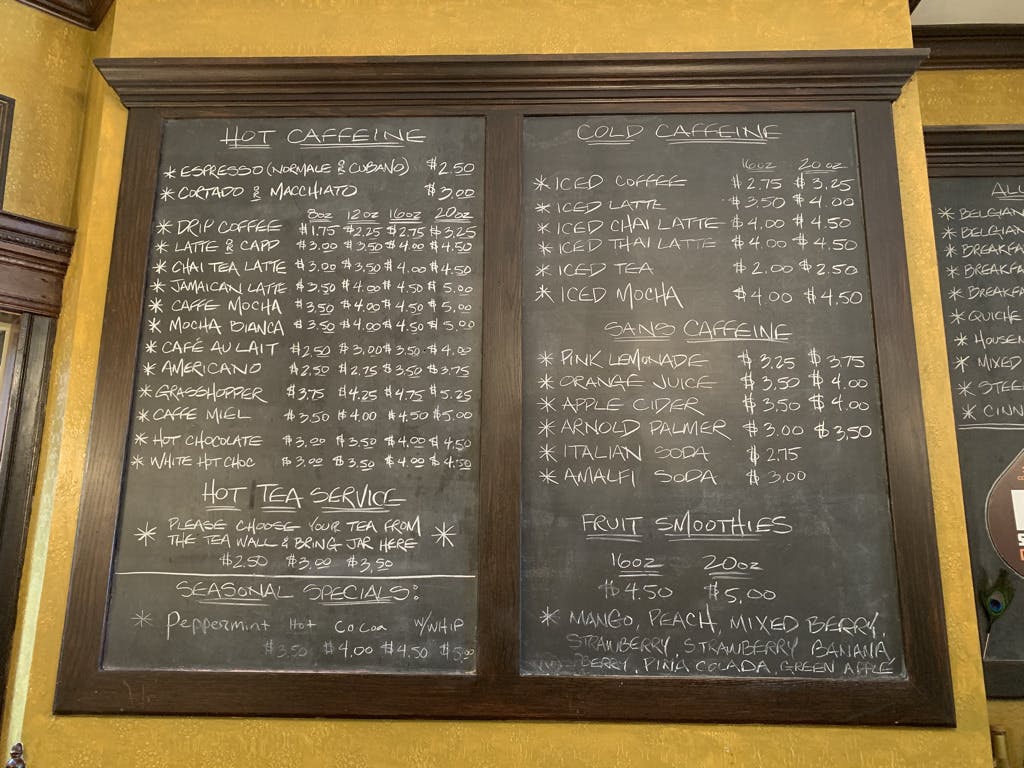 HOT CAFFEINE
* ESPRESSO (NORMALE & CUBANO) $2.50
* CORTADO & MACCHIATO $3.00
8oz 12oz 16oz 20oz
* DRIP COFFEE $1.75 $2.25 $2.75 $3.25
* LATTE & CAPP $3.00 $3.50 $4.00 $4.50
* CHAI TEA LATTE $3.00 $3.50 $4.00 $4.50
* JAMAICAN LATTE $3.50 $4.00 $4.50 $5.00
* CAFFE MOCHA $3.50 $4.00 $4.50 $5.00
* MOCHA BIANCA $3.50 $4.00 $4.50 $5.00
* CAFÉ AU LAIT $2.50 $3.00 $3.50 $4.00
* AMERICANO $2.50 $2.75 $3.50 $3.75
* GRASSHOPPER $3.75 $4.25 $4.75 $5.25
* CAFFE MIEL $3.50 $4.00 $4.50 $5.00
* HOT CHOCOLATE $3.00 $3.50 $4.00 $4.50
* WHITE HOT CHOC $3.00 $3.50 $4.00 $4.50
HOT TEA SERVICE
* PLEASE CHOOSE YOUR TEA FROM *
THE TEA WALL & BRING JAR HERE
$2.50 $3.00 $3.50
SEASONAL SPECIALS:
* Peppermint Hot Cocoa W/WHIP
$3.50 $4.00 $4.50 $5.00
COLD CAFFEINE
16oz 20oz
* ICED COFFEE $2.75 $3.25
* ICED LATTE $3.50 $4.00
* ICED CHAI LATTE $4.00 $4.50
* ICED THAI LATTE $4.00 $4.50
* ICED TEA $2.00 $2.50
* ICED MOCHA $4.00 $4.50
SANS CAFFEINE
* PINK LEMONADE $3.25 $3.75
* ORANGE JUICE $3.50 $4.00
* APPLE CIDER $3.50 $4.00
* ARNOLD PALMER $3.00 $3.50
* ITALIAN SODA $2.75
* AMALFI SODA $3.00
FRUIT SMOOTHIES
16oz 20oz
$4.50 $5.00
* MANGO, PEACH, MIXED BERRY,
STRAWBERRY, STRAWBERRY BANANA
BERRY, PINA COLADA, GREEN APPLE
* BELGIAN
* BELGIAN
* QUICHE
* MIXED